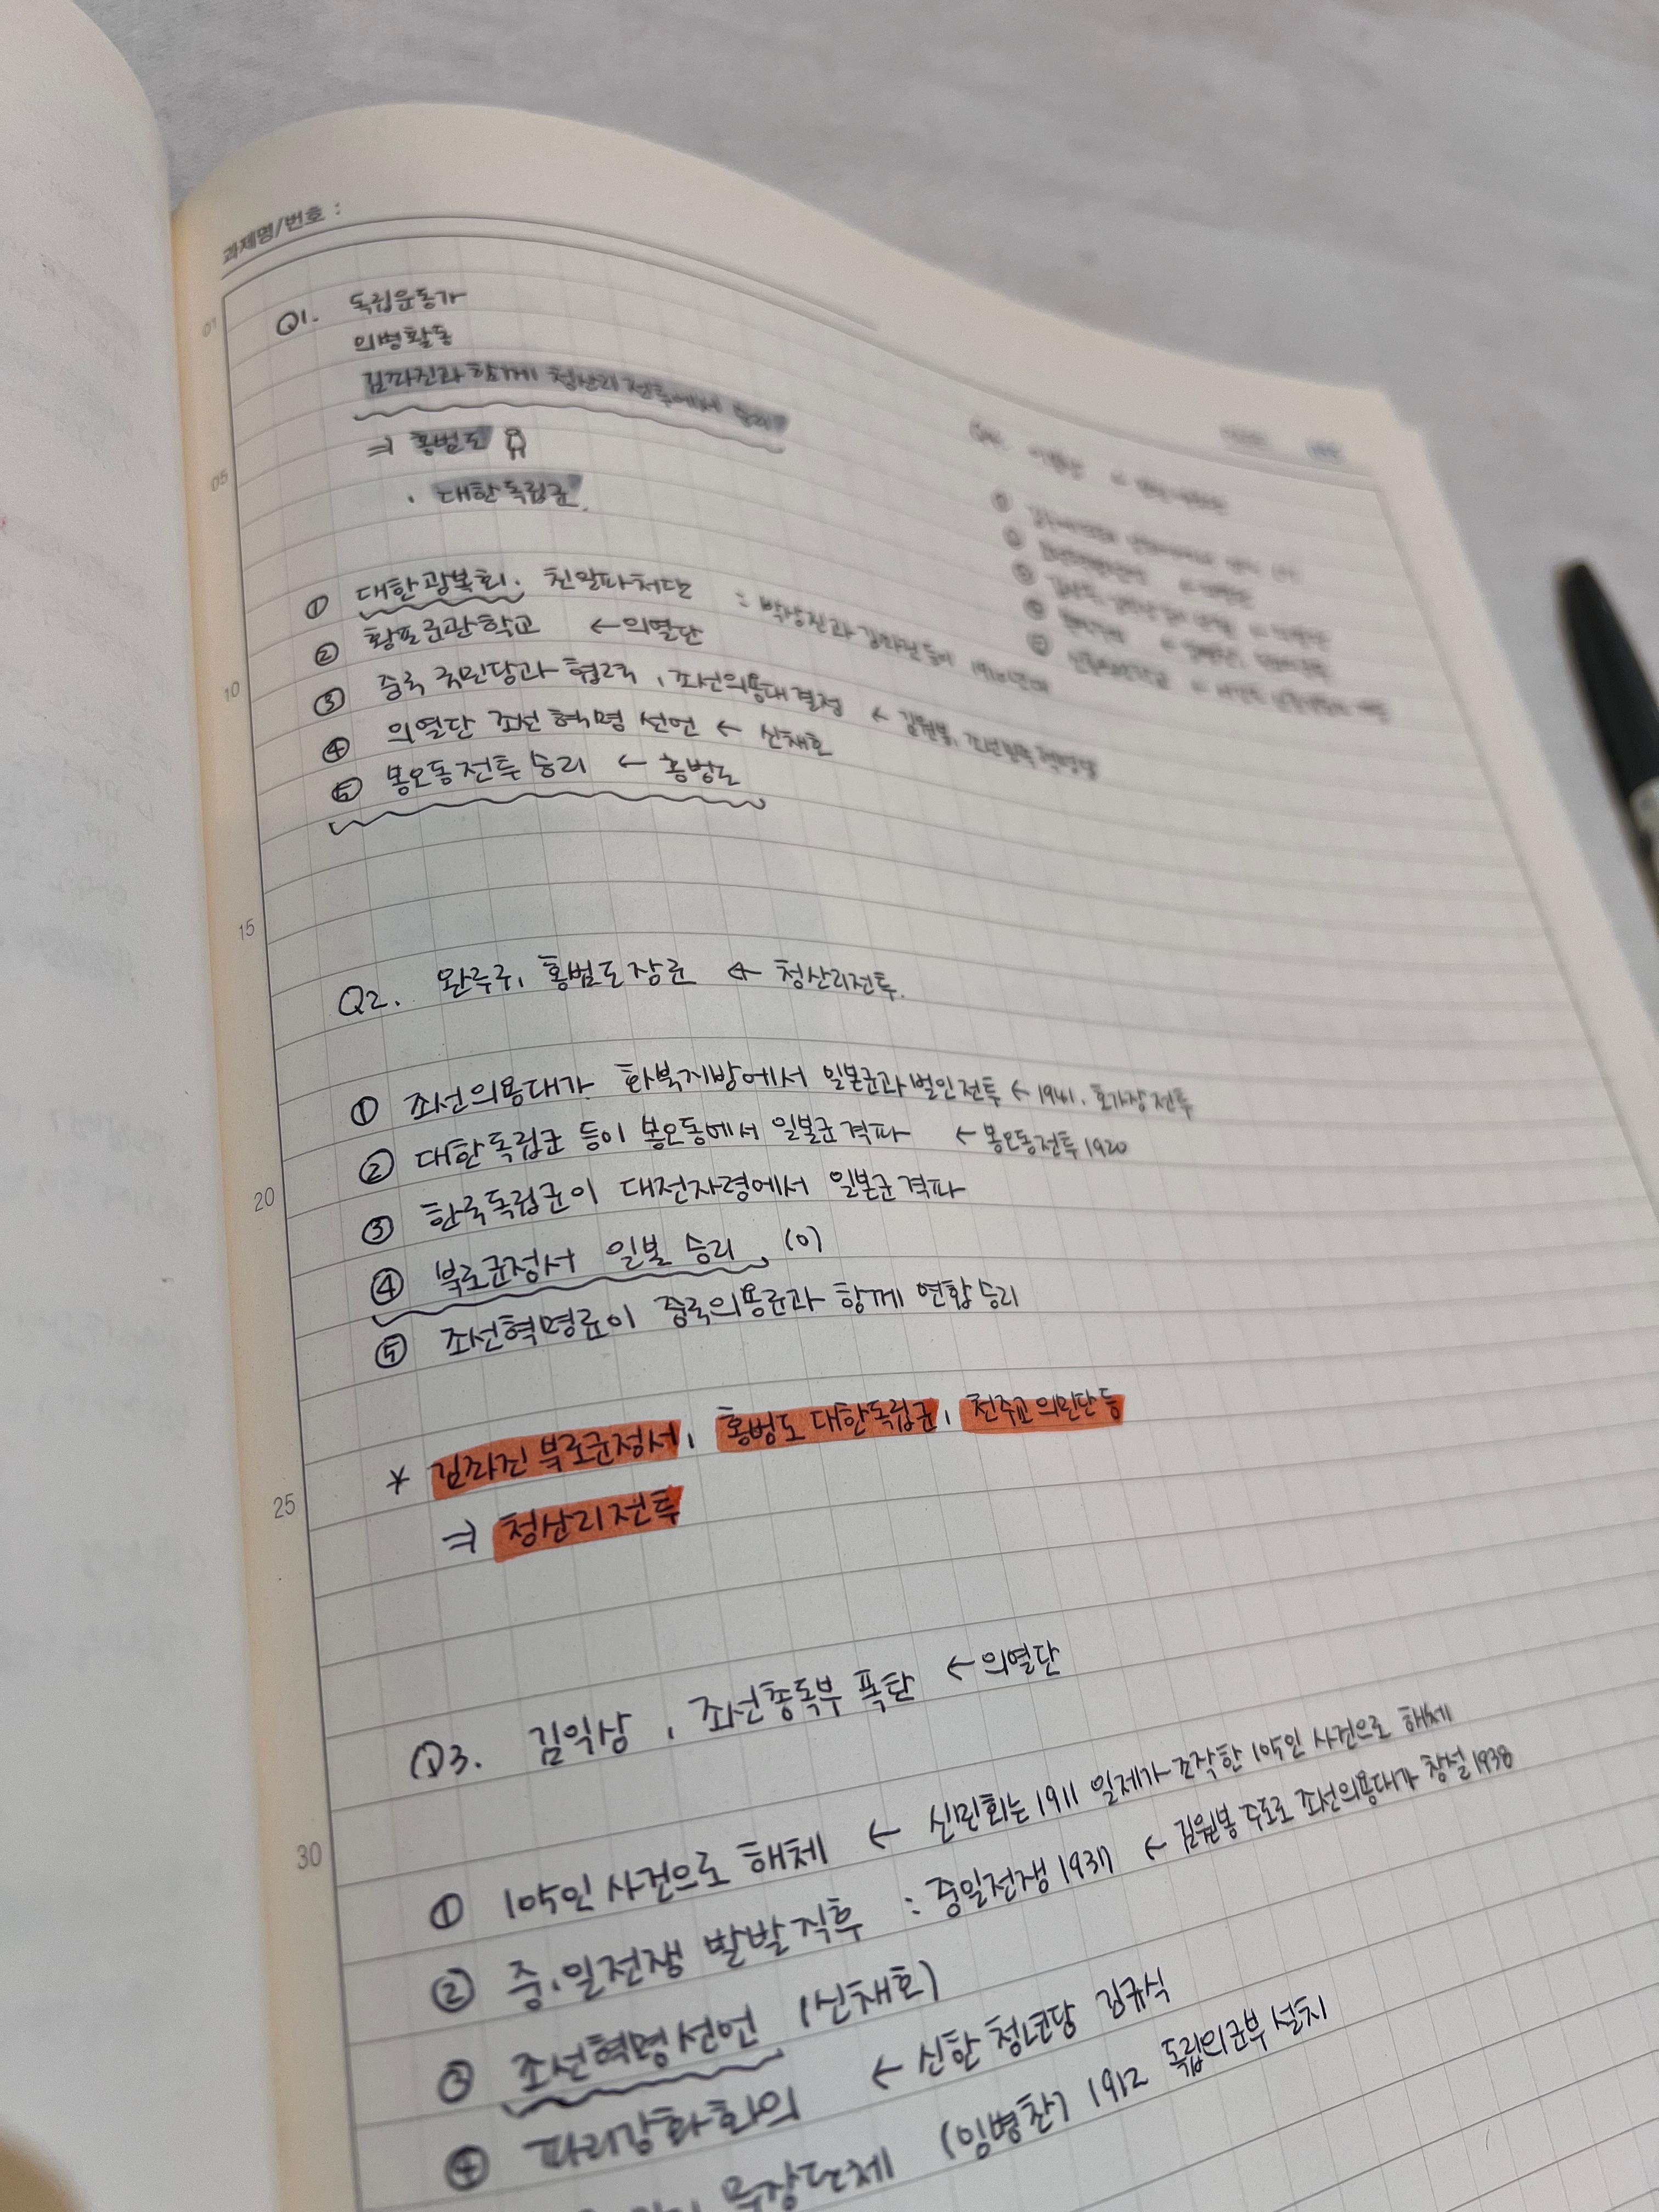 과제명/번호 :
01
Q1. 독립운동가
의병활동
김좌진과 함께 청산리 전투에서 승리
05
⇒ 홍범도
· 대한독립군.
① 대한광복회. 친일파처단 : 박상진과 김좌진 등이 1910년대
② 황포군관학교 ← 의열단
10
③ 중국 국민당과 협력, 조선의용대 결성 ← 김원봉, 조선민족혁명당
④ 의열단 조선 혁명 선언 ← 신채호
⑤ 봉오동전투 승리 ← 홍범도
15
Q2. 완루구, 홍범도 장군 ← 청산리전투.
① 조선의용대가 화북지방에서 일본군과 벌인 전투 ← 1941. 호가장 전투
② 대한독립군 등이 봉오동에서 일본군 격파 ← 봉오동전투 1920
20
③ 한국독립군이 대전자령에서 일본군 격파
④ 북로군정서 일본 승리 (O)
⑤ 조선혁명군이 중국의용군과 함께 연합 승리
* 김좌진 북로군정서, 홍범도 대한독립군, 천주교 의민단 등
25
⇒ 청산리 전투
Q3. 김익상, 조선총독부 폭탄 ← 의열단
30
① 105인 사건으로 해체 ← 신민회는 1911 일제가 조작한 105인 사건으로 해체
② 중.일전쟁 발발 직후 : 중일전쟁 1937 ← 김원봉 주도로 조선의용대가 창설 1938
③ 조선혁명선언 (신채호)
④ 파리강화회의 ← 신한청년당 김규식
무장단체 (임병찬) 1912 독립의군부 설치